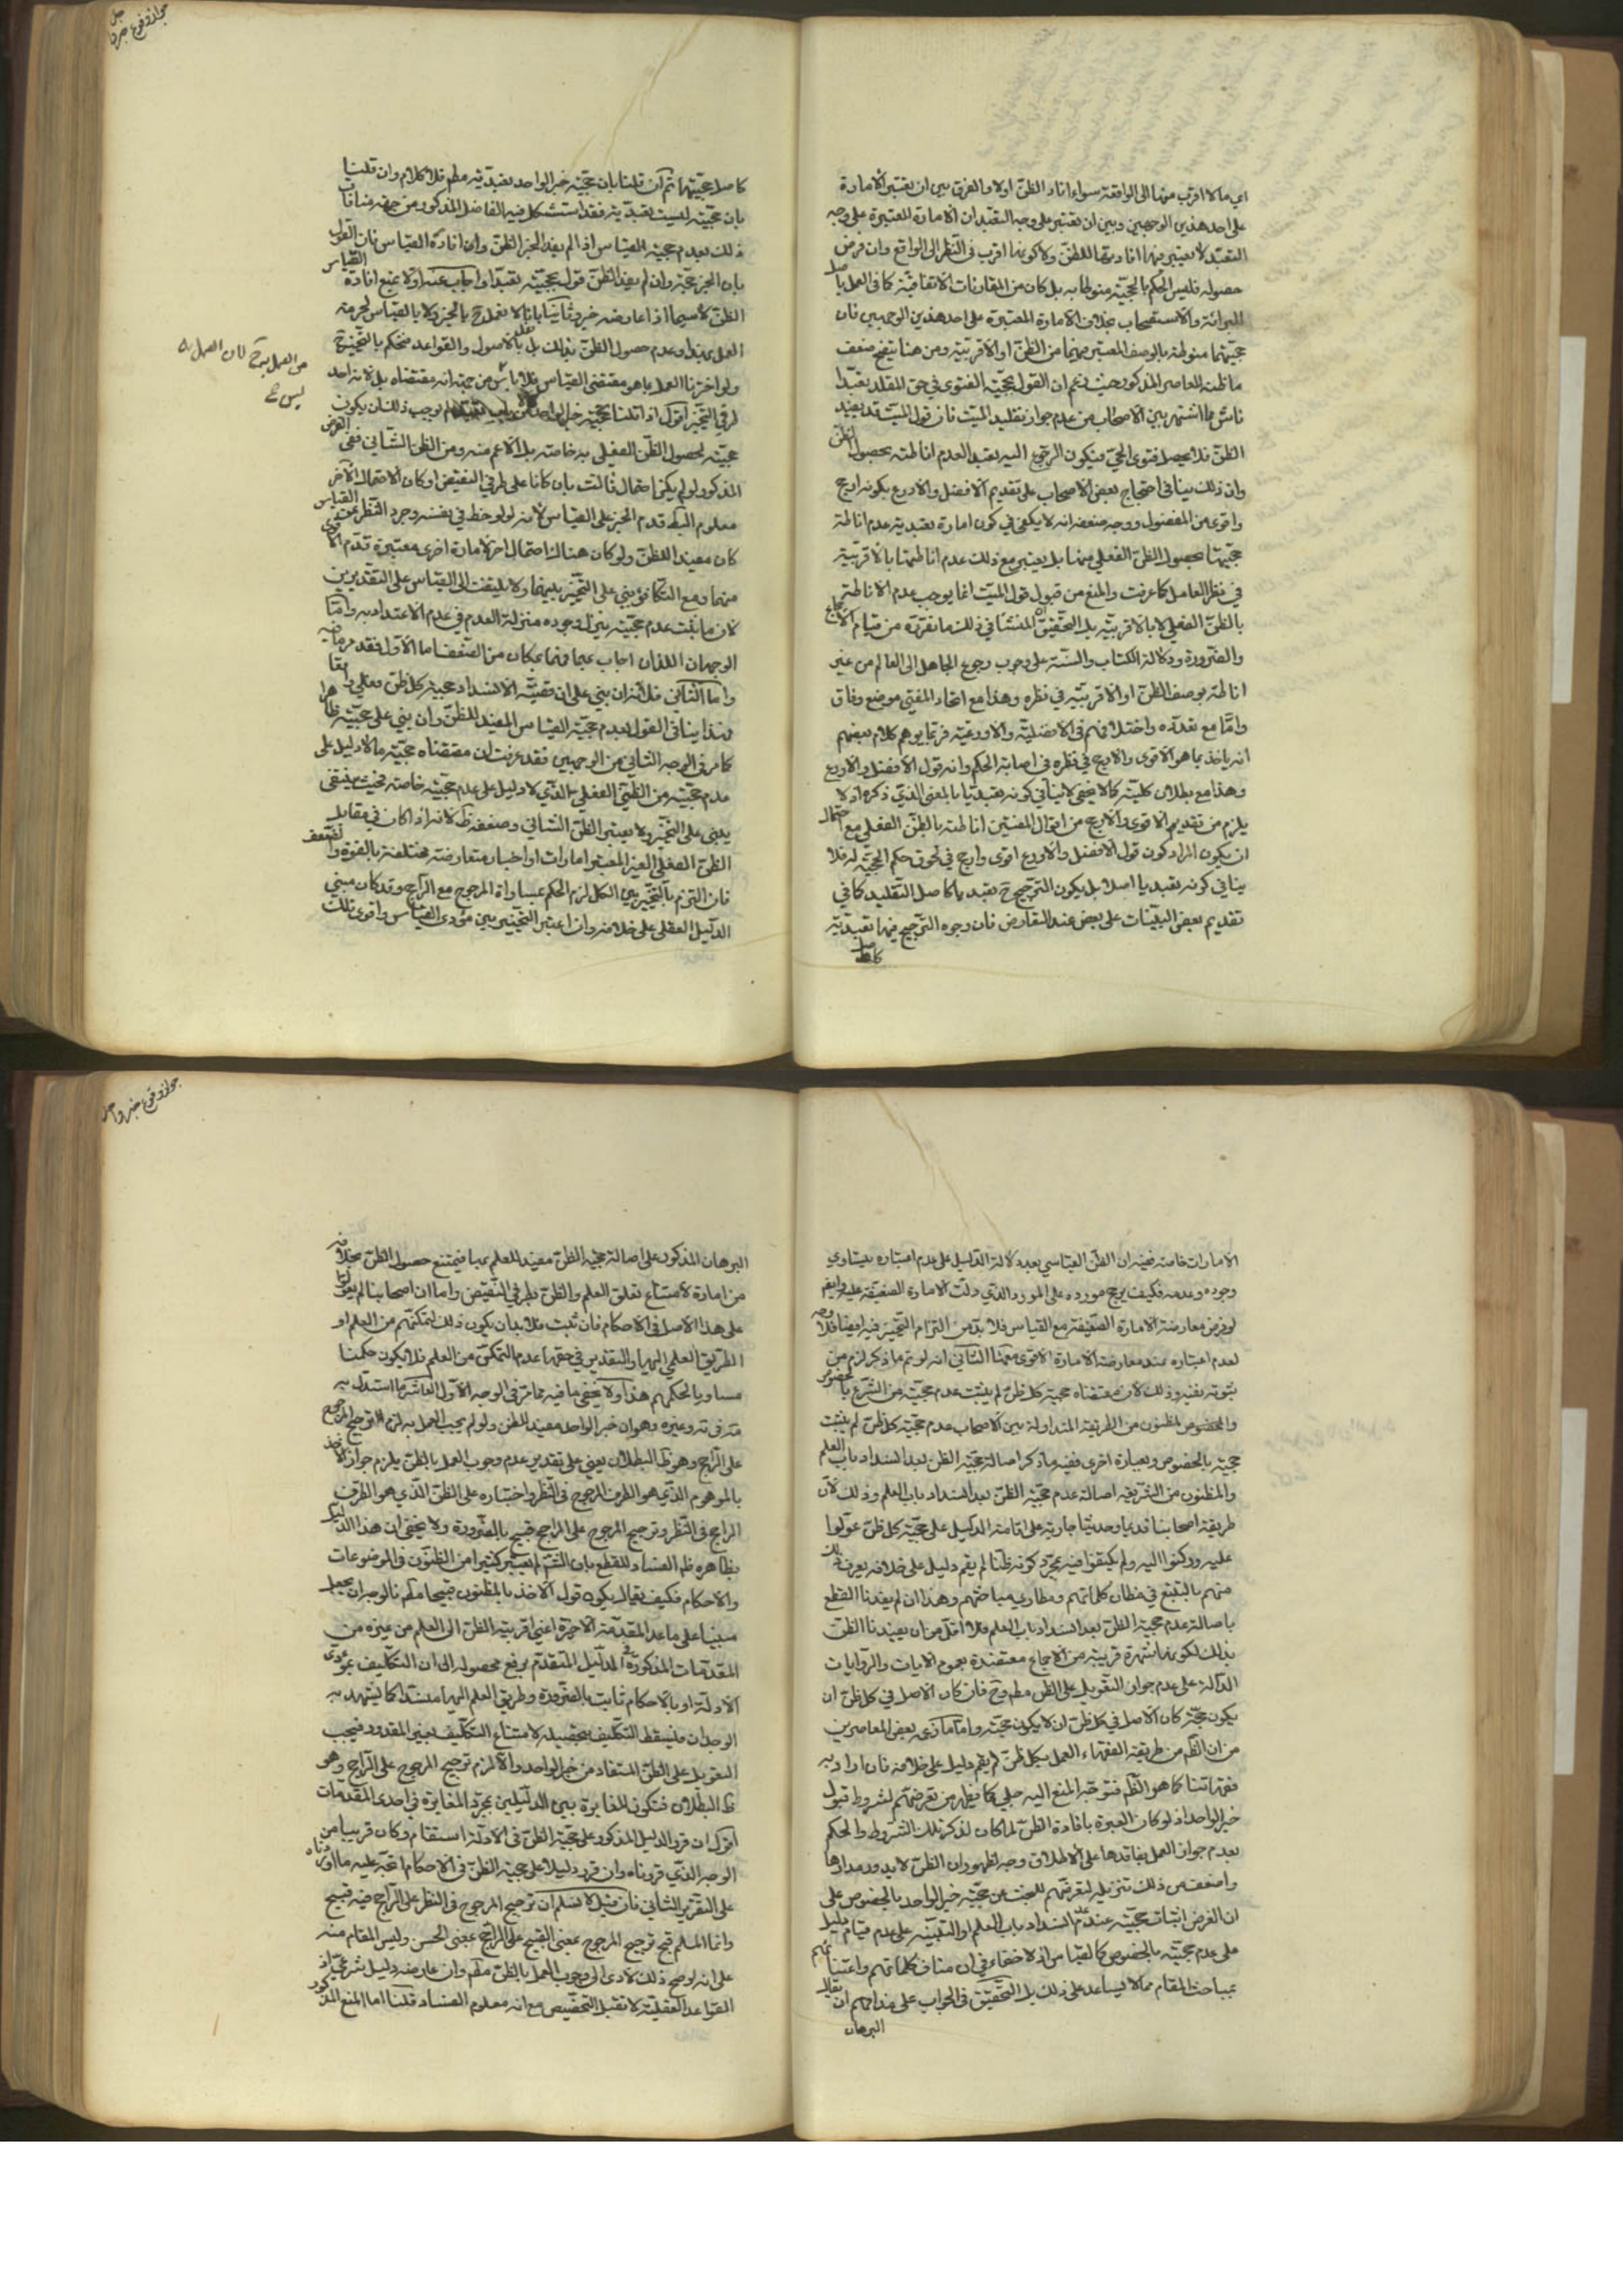 اي مالا اقرب منها الى الواقعة سواء افاد الظنّ اولا والفرق بين ان يعتبر الامارة
على احد هذين الوجهين وبين ان يعتبر على وجه التعبّد ان الامارة المعتبرة على وجه
التعبّد لا يعتبر فيها افادتها للظنّ ولا كونها اقرب في النّظر الى الواقع وان فرض
حصوله فليس الحكم بالحجيّة منوطا به بل كان من المقارنات الاتفاقيّة كما في العمل باصل
البرائة والاستصحاب بخلاف الامارة المعتبرة على احد هذين الوجهين فان
حجيّتها منوطة بالوصف المعتبر فيها من الظنّ او الاقربيّة ومن هنا يتّضح ضعف
ما ظنه المعاصر المذكور حيث زعم ان القول بحجيّة الفتوى في حق المقلد تعبّدا
ناش مما اشتهر بين الاصحاب من عدم جواز تقليد الميّت فان قول الميّت قد يفيد
الظنّ فلا يحصل فتوى الحيّ فيكون الرجوع اليه تعبد العدم اناطته بحصول الظنّ
وان ذلك ينافي احتجاج بعض الاصحاب على تقديم الافضل والاورع بكونه ارجح
واقوى من المفضول ووجه ضعفه انه لا يكفي في كون امارة تعبدية عدم اناطة
حجيّتها بحصول الظنّ الفعلي منها بل يعتبر مع ذلك عدم اناطتها بالاقربيّة
في نظر العامل كما عرفت والمنع من قبول قول الميّت انما يوجب عدم الاناطة
بالظنّ الفعلي لا بالاقربيّة بل التحقيق ان المنشا في ذلك ما تقرّر من قيام الاجماع
والضرورة ودلالة الكتاب والسنّة على وجوب رجوع الجاهل الى العالم من غير
اناطة بوصف الظنّ او الاقربيّة في نظره وهذا مع اتحاد المفتي موضع وفاق
وامّا مع تعدّده واختلافهم في الافضليّة والاورعيّة فربّما يوهم كلام بعضهم
انه ياخذ بما هو الاقوى والارجح في نظره في اصابة الحكم وانه قول الافضل والاورع
وهذا مع بطلان كليّته كما لا يخفى لا ينافي كونه تعبديّا بالمعنى الذي ذكره اذ لا
يلزم من تقديم الاقوى والارجح من اقوال المفتين اناطته بالظنّ الفعلي مع احتمال
ان يكون المراد كون قول الافضل والاورع اقوى وارجح في لحوق حكم الحجيّة له فلا
ينافي كونه تعبديا اصلا بل يكون الترجيح ح تعبديا كاصل التقليد كما في
تقديم بعض البيّنات على بعض عند التعارض فان وجوه الترجيح فيها تعبديّة
كاصل
جواز وقوع خبر واحد
كاصل حجيّتها ثم ان قلنا بان حجيّة خبر الواحد تعبديّة مطم فلا كلام وان قلنا
بان حجيّته ليست تعبديّة فقد استشكل فيه الفاضل المذكور من جهة منافات
ذلك لعدم حجيّة القياس اذا لم يفد الخبر الظنّ وان افاده القياس فان القول
بان الخبر حجّة وان لم يفد الظنّ قول بحجيّته تعبّدا واجاب عنه اولا بمنع افادة القياس
الظنّ لا سيما اذا عارضه خبر وثانيا بانا لا نعمل ح بالخبر ولا بالقياس لحرمة
العمل به ابدا وعدم حصول الظنّ بذلك بل نعمل بالاصول والقواعد فنحكم بالتخيير
من العمل بهما ح لان العمل به
ليس ح
ولو اخترنا العمل بما هو مقتضى القياس فلا باس من جهة انه مقتضاه بل لانه احد
طرفي التخيير اقول اذا قلنا بحجيّة خبر الواحد لم يوجب ذلك ان يكون
حجيّته لحصول الظنّ الفعلي به خاصة بل الاعم منه ومن الظن الشاني ففي الفرض
المذكور لو لم يكن احتمال ثالث بان كانا على طرفي النقيض او كان الاحتمال الآخر
معلوم البطلان قدم الخبر على القياس لانه لو لوحظ في نفسه وجرد النّظر عن القياس
كان مفيدا للظنّ ولو كان هناك احتمال اخر لامارة اخرى معتبرة قدّم الاقوى
منهما ومع التكافؤ يبني على التخيير بينهما ولا يلتفت الى القياس على التقديرين
لان ما ثبت عدم حجيّته ينزل وجوده منزلة العدم في عدم الاعتداد به وامّا
الوجهان اللذان اجاب بهما فهما بمكان من الضّعف اما الاول فقد مر ما فيه
وامّا الثّاني فلانّه ان بني على ان قضيّة الانسداد حجية كل ظن فعلي
فهذا ينافي القول بعدم حجيّة القياس المفيد للظنّ وان بني على حجيّته ظاهرا
كما مر في الوجه الثاني من الوجهين فقد عرفت ان مقتضاه حجيّة ما لا دليل على
عدم حجيّته من الظنّي الفعلي بالذي لا دليل على عدم حجيّته خاصة فحيث ينتفي
يبنى على التخيير ولا يعتبر الظنّ الشاني وضعفه ظ لانه اذا كان في مقابل
الظنّ الفعلي الغير المعتبر امارات او اخبار متعارضة مختلفة بالقوة والضعف
فان التزم بالتخيير بين الكل لزم الحكم بمساواة المرجوح مع الراجح وقد كان مبني
الدليل العقلي على خلافه وان اعتبر التخيير بين مؤدى القياس واقوى تلك
الامارات خاصة ففيه ان الظن القياسي بعد دلالة الدليل على عدم اعتباره يتساوى
وجوده وعدمه فكيف يرجح مورده على المورد الذي دلّت الامارة الضعيفة عليه وايضا
لو فرض معارضة الامارة الضعيفة مع القياس فلا بدّ من التزام التخيير فيه ايضا فلا وجه
لعدم اعتباره عند معارضة الامارة الاقوى معهما الثاني انه لو تم ما ذكر لزم من
ثبوته نفيه وذلك لان مقتضاه حجية كل ظنّ لم يثبت عدم حجيّته من الشرع بالخصوص
والمظنون من الطريقة المتداولة بين الاصحاب عدم حجيّة كل ظنّ لم يثبت
حجيّته بالخصوص وبعبارة اخرى قضيّة ما ذكر اصالة حجيّة الظن بعد انسداد باب العلم
والمظنون من الشريعة اصالة عدم حجيّة الظنّ بعد انسداد باب العلم وذلك لان
طريقة اصحابنا قديما وحديثا جارية على اقامة الدليل على حجيّة كل ظنّ عوّلوا
عليه وركنوا اليه ولم يكتفوا فيه بمجرّد كونه ظنّا لم يقم دليل على خلافه يعرف ذلك
منهم بالتتبع في مظان كلماتهم ومطاوي مباحثهم وهذا ان لم يفدنا القطع
باصالة عدم حجية الظنّ بعد انسداد باب العلم فلا اقلّ من ان يفيدنا الظنّ
بذلك لكونها شهرة قريبة من الاجماع معتضدة بعموم الآيات والروايات
الدالة على عدم جواز التعويل على الظن مطم وح فان كان الاصل في كل ظنّ ان
يكون حجيّة كان الاصل في كل ظنّ ان لا يكون حجيّة وامّا ما ذكره بعض المعاصرين
من ان الظّم من طريقة الفقهاء العمل بكل ظنّ لم يقم دليل على خلافه فان اراد به
فقهائنا كما هو الظّم فتوجّه المنع اليه جلي كما يظهر من تعرضهم لشروط قبول
خبر الواحد اذ لو كان العبرة بافادة الظنّ لما كان لذكر تلك الشروط والحكم
بعدم جواز العمل بفاقدها على الاطلاق وجه لظهور ان الظنّ لا يدور مدارها
واضعف من ذلك تنزيله لتعرضهم للبحث عن حجيّة خبر الواحد بالخصوص على
ان الغرض اثبات حجيّته عند عدم انسداد باب العلم او التنبيه على عدم قيام دليل
على عدم حجيّته بالخصوص كالقياس اذ لا خفاء في ان مساق كلماتهم واعتنائهم
بمباحث المقام مما لا يساعد على ذلك بل التحقيق في الجواب على مذاقهم ان يقال
البرهان
جواز وقوع خبر واحد
البرهان المذكور على اصالة حجيّة الظنّ مفيد للعلم بها فيمتنع حصول الظنّ بخلافه
من امارة لامتناع تعلق العلم والظنّ بطرفي النّقيض واما ان اصحابنا لم يعوّلوا
على هذا الاصل في الاحكام فان ثبت فلا بد ان يكون ذلك لتمكنهم من العلم او
الطريق العلمي اليها والتقدير في حقنا عدم التمكن من العلم فلا يكون حكمنا
مساويا لحكمهم هذا ولا يخفى ما فيه مما مر في الوجه الاول العاشر ما استدل به
وغيره وهو ان خبر الواحد مفيد للظن ولو لم يجب العمل به لزم ترجيح المرجوح
على الراجح وهو ظ البطلان يعني على تقدير عدم وجوب العمل بالظنّ يلزم جواز الاخذ
بالموهوم الذي هو الطرف المرجوح في النّظر واختياره على الظنّ الذي هو الطرف
الراجح في النّظر وترجيح المرجوح على الراجح قبيح بالضرورة ولا يخفى ان هذا الدليل
بظاهره ظم الفساد للقطع بان الشّرع لم يعتبر كثيرا من الظنون في الموضوعات
والاحكام فكيف يقال يكون قول الاخذ بالمظنون قبيحا فالوجه ان يجعل
مبنيا على ما عدا المقدمة الاخيرة اعني اقربية الظنّ الى العلم من غيره من
المقدّمات المذكورة في الدليل المتقدّم يرفع محصوله الى ان التكاليف بمؤدى
الادلة او بالاحكام ثابت بالضرورة وطريق العلم اليها منسدّ كما يشهد به
الوجدان فليسقط التكليف بتحصيله لامتناع التكليف بغير المقدور فيجب
التعويل على الظنّ المستفاد من خبر الواحد والا لزم ترجيح المرجوح على الراجح وهو
ظ البطلان فتكون المغايرة بين الدليلين بمجرّد المغايرة في احدى المقدمات
اقول ان قرر الدليل المذكور على حجيّة الظنّ في الادلّة استقام وكان قريبا من
الوجه الذي قررناه وان قرر دليلا على حجيّة الظنّ في الاحكام اتجه عليه ما اوردناه
على التقرير الثاني فان قيل لا نسلم ان ترجيح المرجوح في النظر على الراجح فيه قبيح
وانما المسلم قبح ترجيح المرجوح بمعنى القبيح على الراجح بمعنى الحسن وليس المقام منه
على انه لو صح ذلك لادى الى وجوب العمل بالظنّ مطم وان عارضه دليل شرعي اذ
القواعد العقليّة لا تقبل التخصيص مع انه معلوم الفساد قلنا اما المنع المذكور